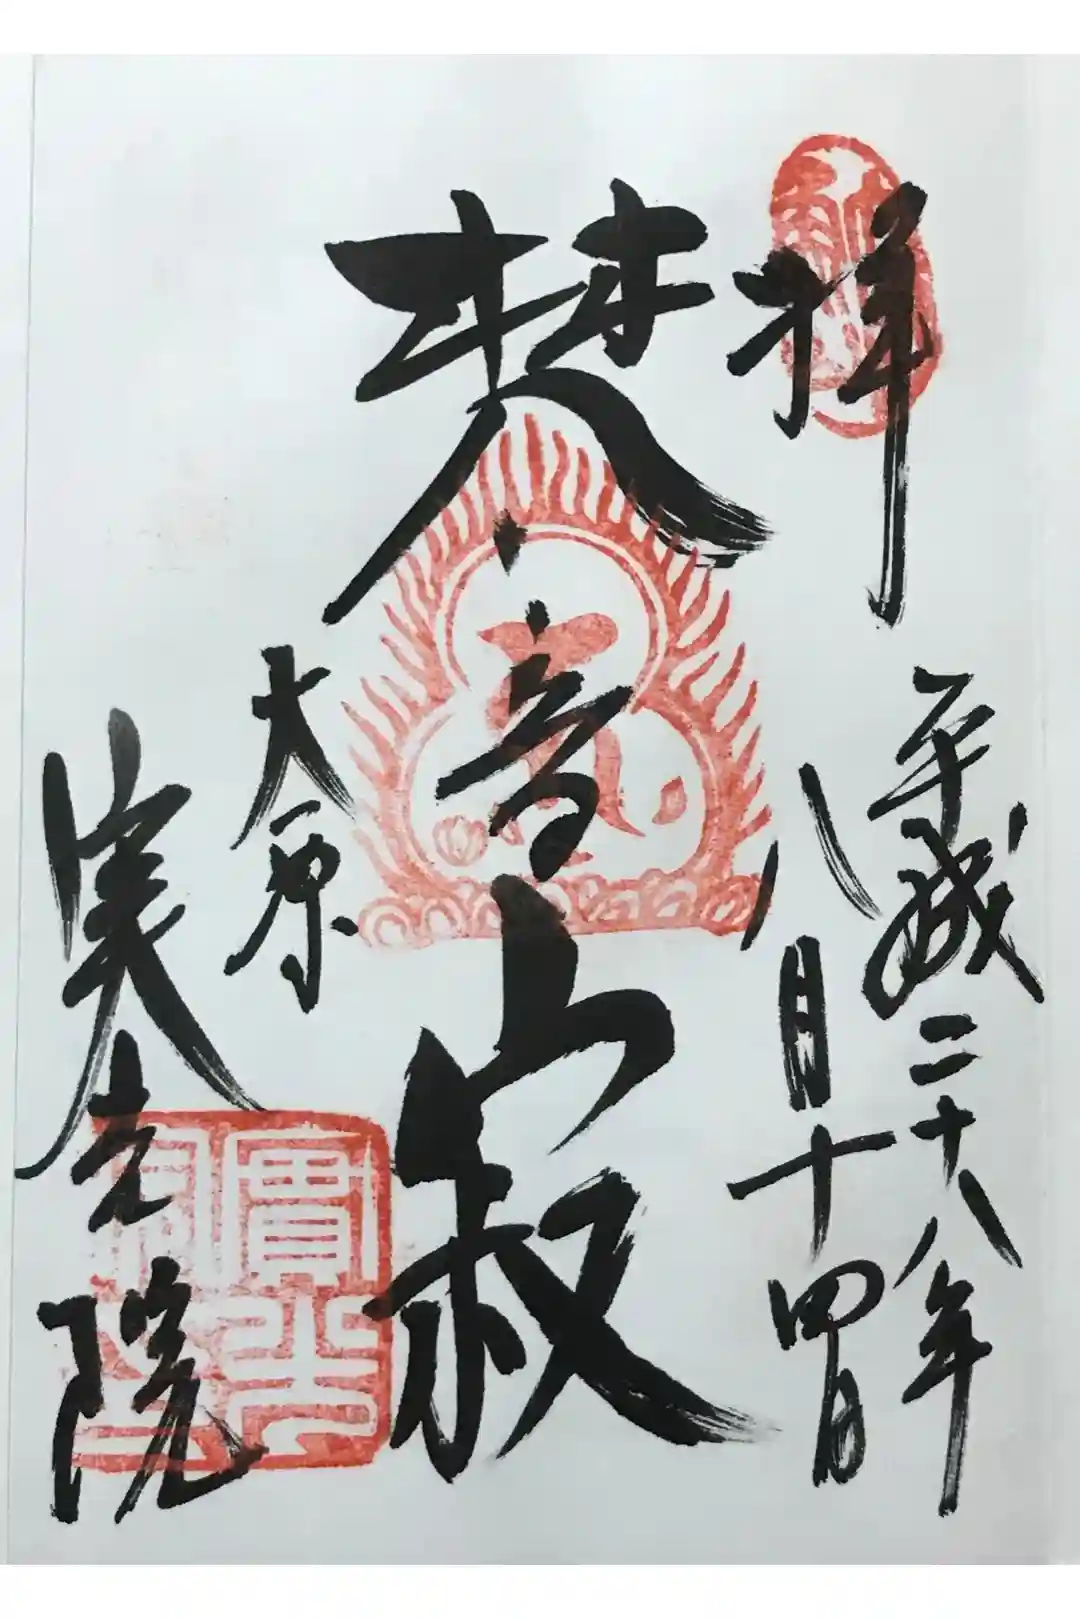 拝
平成二十八年
八月十四日
梵音寂
大原
実光院
實光
院印